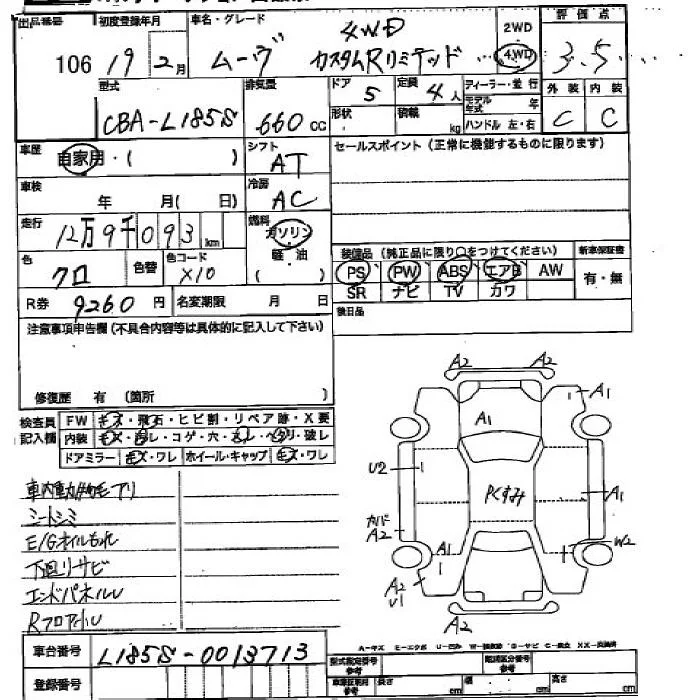 出品番号
106
初度登録年月
19 2月
車名・グレード
4WD
ムーヴ カスタムRリミテッド
2WD
4WD
評価点
3.5
型式
CBA-L185S
排気量
660 cc
ドア
5
形状
定員
4人
積載
kg
ディーラー・並行
モデル年式 年
ハンドル 左・右
外装
C
内装
C
車歴
自家用・( )
シフト
AT
セールスポイント (正常に機能するものに限ります)
車検
年 月( 日)
冷房
AC
走行
12万9千093 km
燃料
ガソリン
軽・油
( )
色
クロ
色替
色コード
X10
装備品 (純正品に限り○をつけてください)
PS PW ABS エアB AW
SR ナビ TV カワ
新車保証書
有・無
R券
9260円
名変期限 月 日
後日品
注意事項申告欄 (不具合内容等は具体的に記入して下さい)
修復歴 有 (箇所 )
検査員記入欄
FW キズ・飛石・ヒビ割・リペア跡・X要
内装
コゲ・穴
破レ
ドアミラー キズ・ワレ ホイール・キャップ キズ・ワレ
シートシミ
E/Gオイルもれ
下廻リサビ
エンドパネルU
A2 A2
A1
A1
U2
PCすみ
A1
A2
A1
W2
A2
U1
A2
車台番号
L185S-0013713
登録番号
型式指定番号
参考
類別区分番号
参考
長さ cm
幅 cm
高さ cm